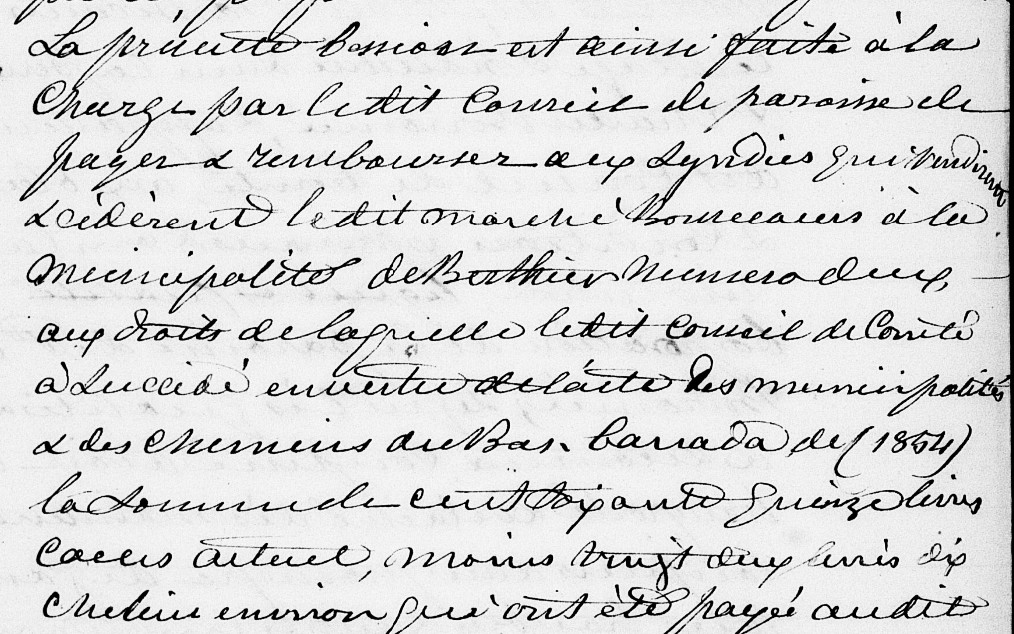 La présente Cession est ainsi faite à la
Charge par ledit Conseil de paroisse de
payer & rembourser aux Syndics qui vendirent
& cédèrent ledit marché Bonsecours à la
Municipalité de Berthier Numero deux,
aux droits de laquelle ledit Conseil de Comté
à Succédé en vertu de l'acte des municipalités
& des Chemins du Bas-Canada de (1854)
la Somme de cent soixante quinze livres
Cours actuel, moins vingt deux livres dix
Chelins environ qui ont été payé audit